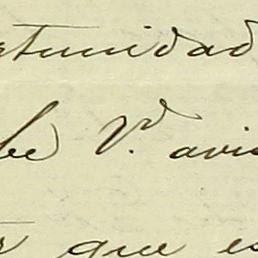 rtunidad
be V.d avis
r que es